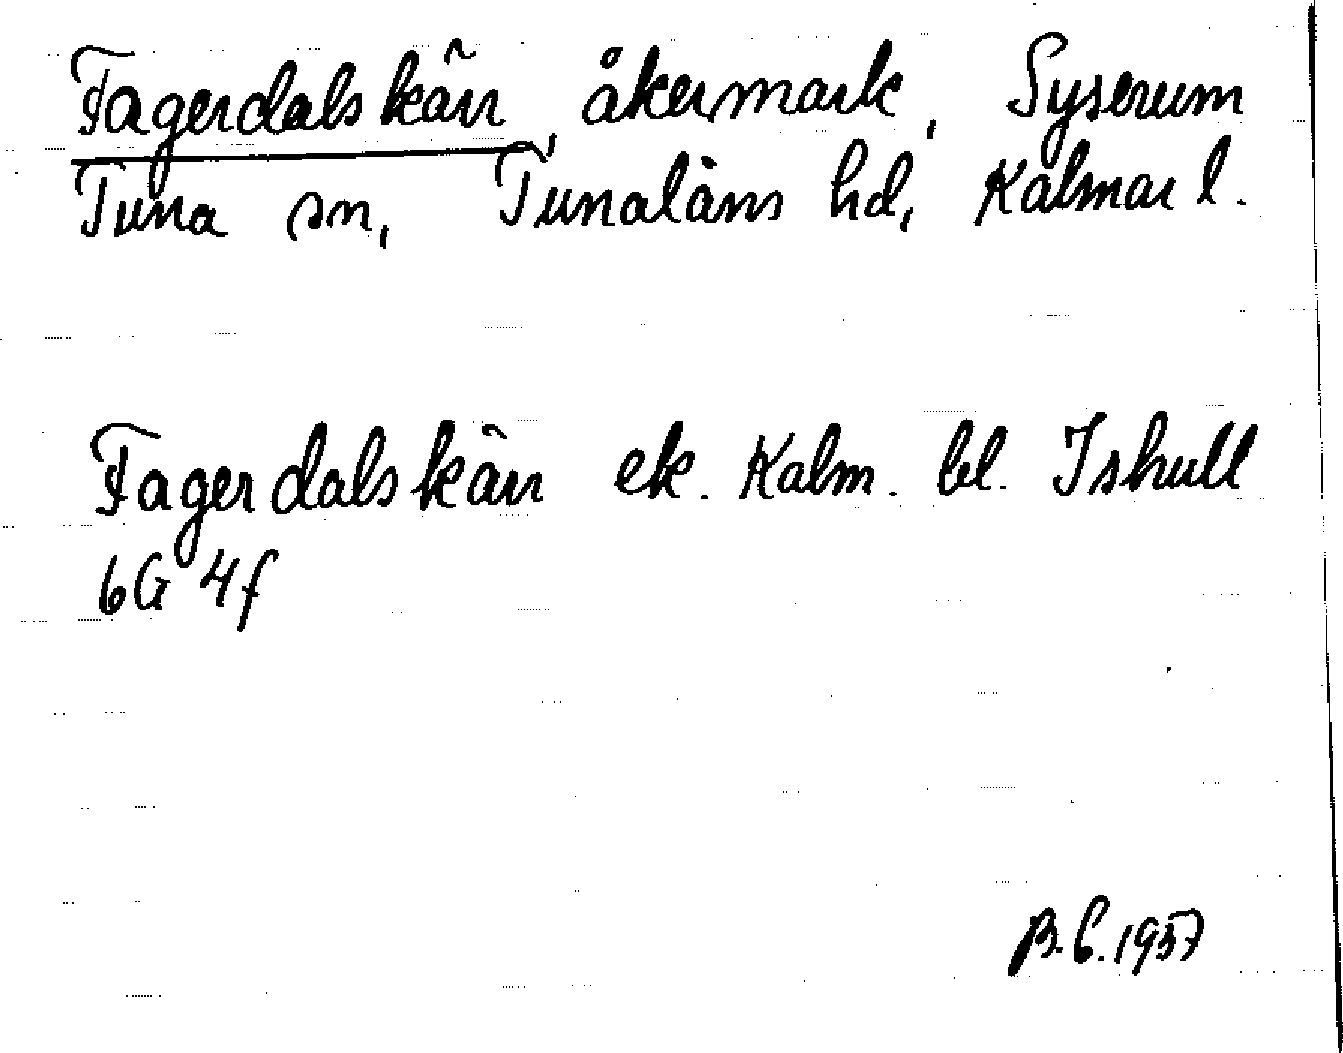 Fagerdalskärr, åkermark, Syserum
Tuna sn, Tunaläns hd, Kalmar l.
Fagerdalskärr ek. Kalm. bl. Ishult
6G 4f
B.C. 1957